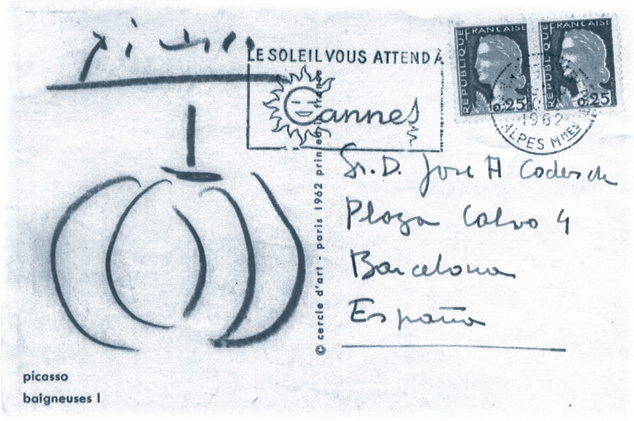 Picasso
LE SOLEIL VOUS ATTEND À
Cannes
REPUBLIQUE FRANÇAISE
0.25
REPUBLIQUE FRANÇAISE
0.25
1962
ALPES Mmes
Sr. D. José A Coderch
Plaza Calvo 4
Barcelona
España
© cercle d'art - paris 1962 printed in france
picasso
baigneuses I